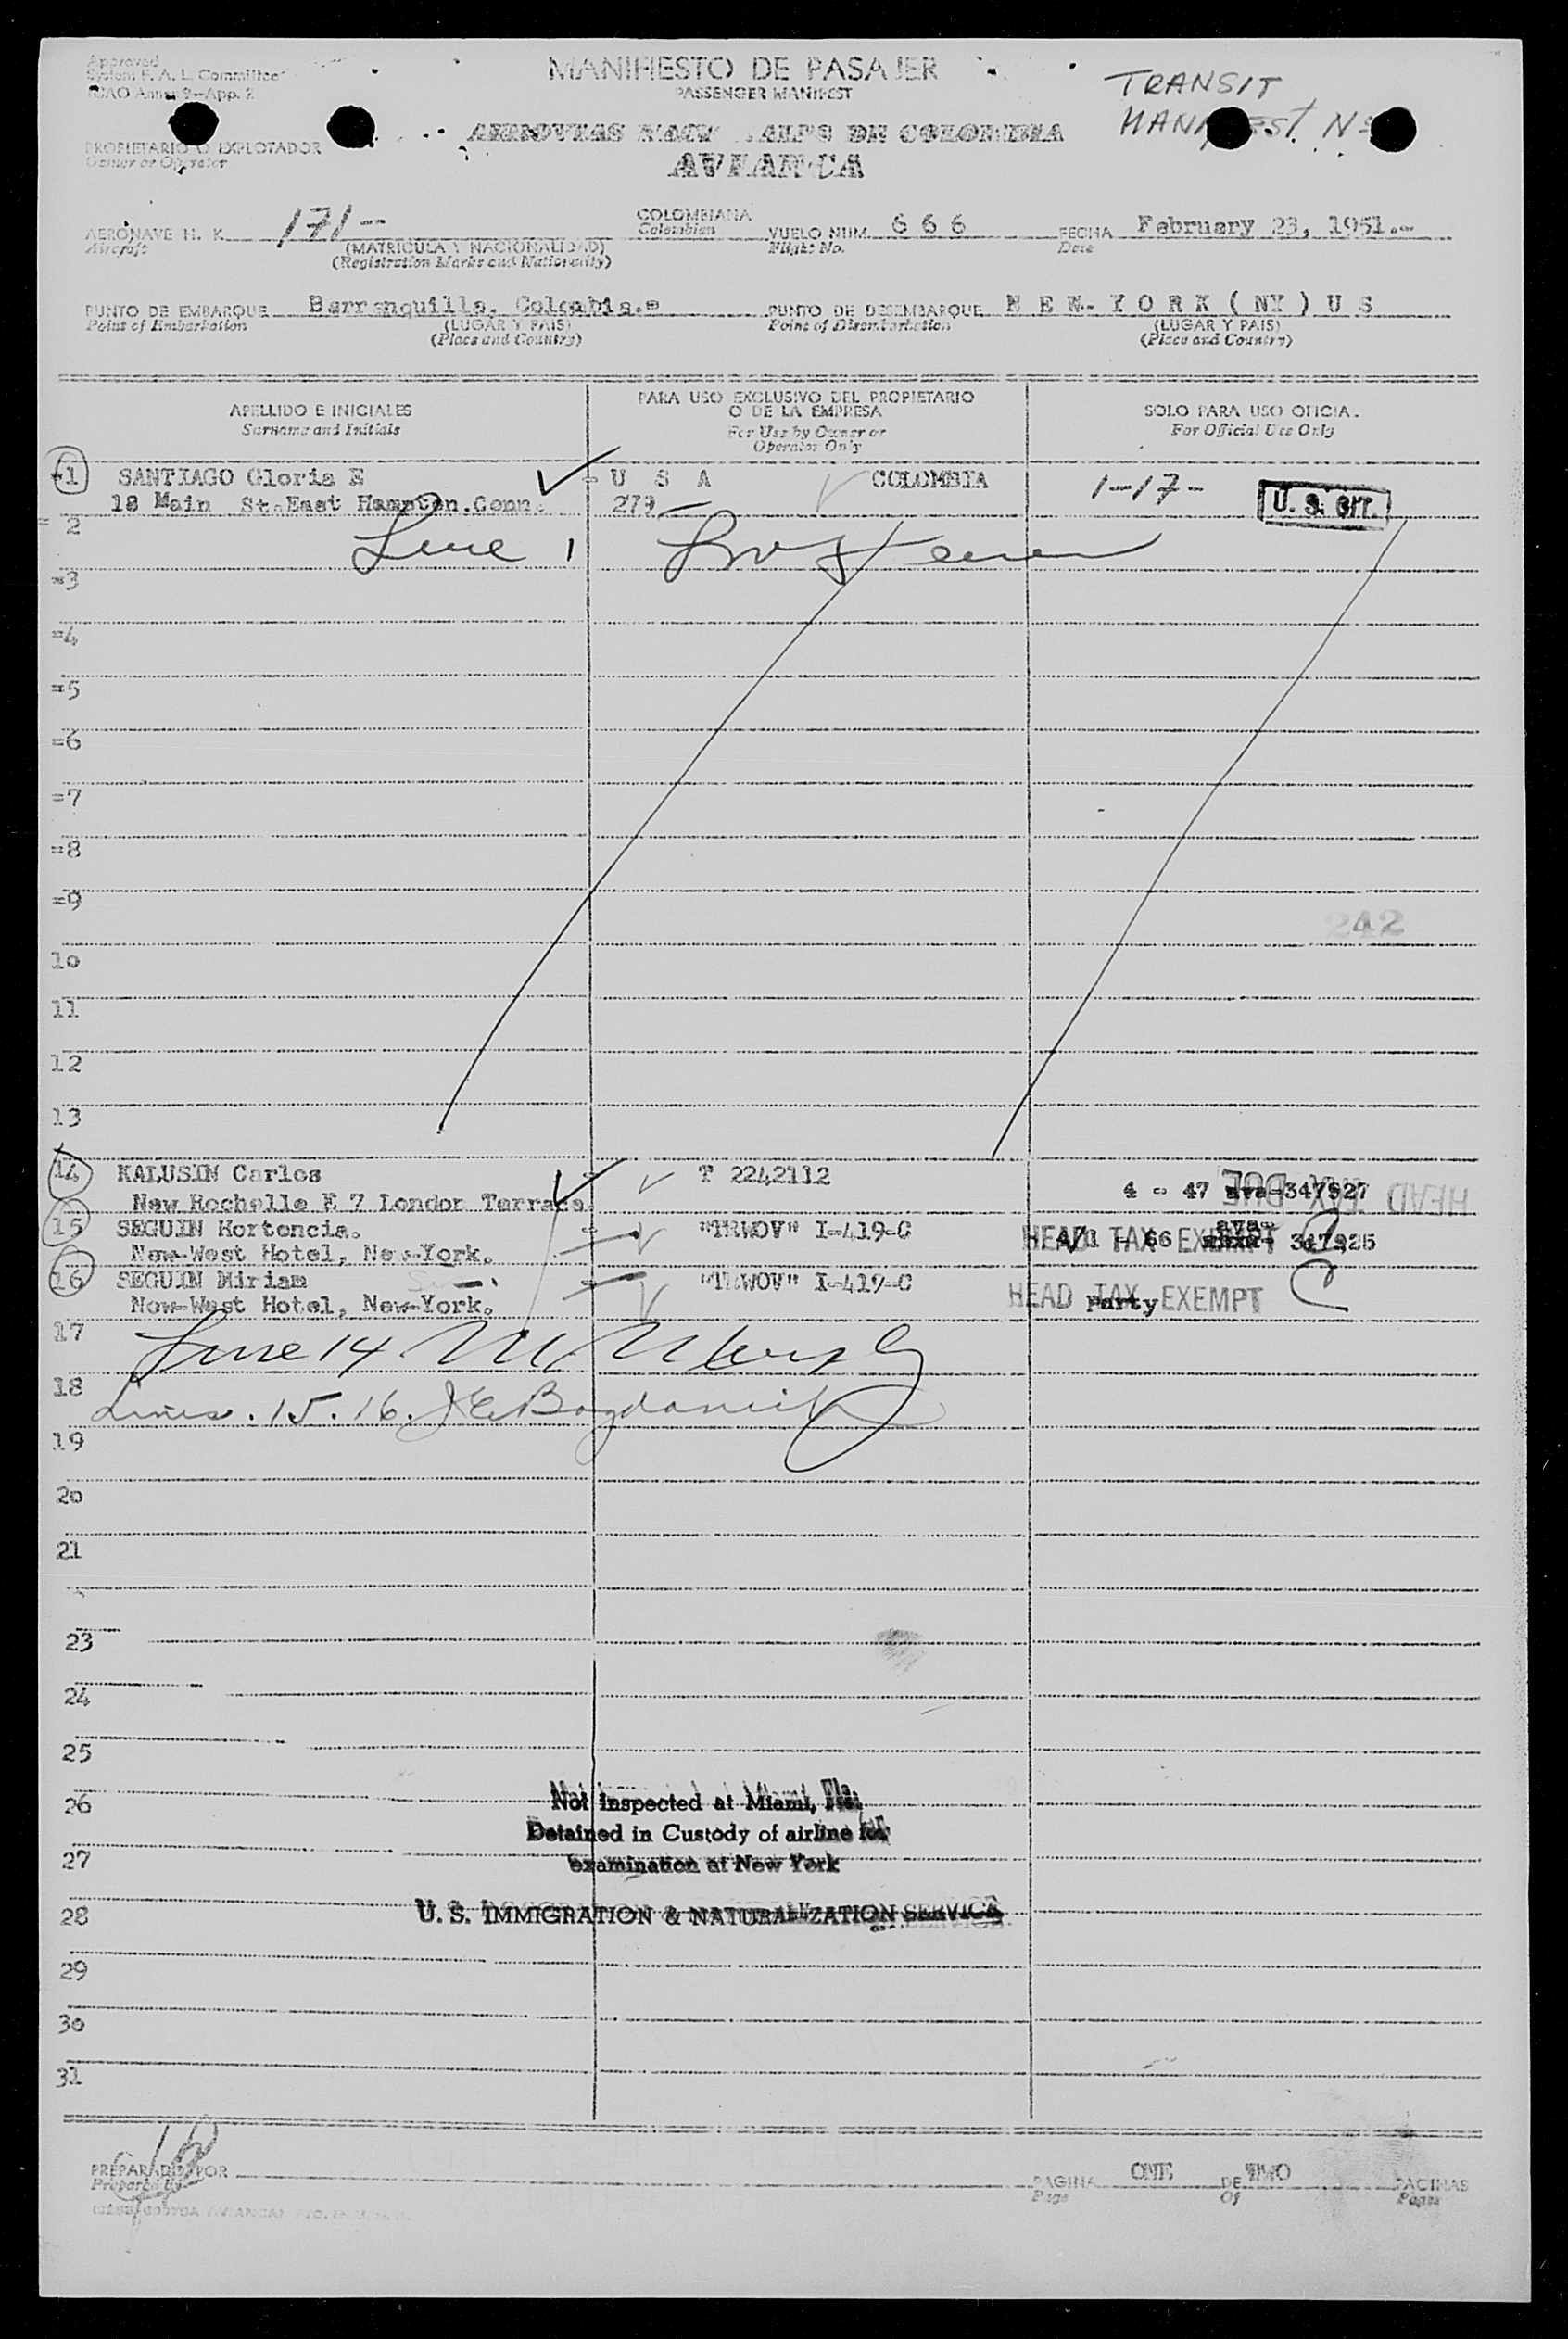 Approved
System F. A. L. Committee
ICAO Annex 9-App. 2
MANIFIESTO DE PASAJER
PASSENGER MANIFEST
TRANSIT
MANIFEST No
PROPIETARIO O EXPLOTADOR
Owner or Operator
DE COLOMBIA
AVIANCA
AERONAVE H. K. 171-- COLOMBIANA VUELO NUM. 666 FECHA February 23, 1951.-
Aircraft Colombian Flight No. Date
(MATRICULA Y NACIONALIDAD)
(Registration Marks and Nationality)
PUNTO DE EMBARQUE Barranquilla, Colombia.= PUNTO DE DESEMBARQUE N E W- Y O R K ( NY ) U S
Point of Embarkation (LUGAR Y PAIS) Point of Disembarkation (LUGAR Y PAIS)
(Place and Country) (Place and Country)
APELLIDO E INICIALES
Surname and Initials
PARA USO EXCLUSIVO DEL PROPIETARIO
O DE LA EMPRESA
For Use by Owner or
Operator Only
SOLO PARA USO OFICIA.
For Official Use Only
=1 SANTIAGO Gloria E = U S A COLOMBIA 1-17- U. S. CIT.
18 Main St.East Hampton.Conn. 279
= 2
Line 1
=3
=4
=5
=6
=7
=8
=9
242
10
11
12
13
14 KALUSIN Carlos = T 2242112
New Rochelle E 7 London Terrace 4 - 47 ava-347927 HEAD TAX DUE
15 SEGUIN Hortencia. = "TRWOV" I-419-C HEAD TAX EXEMPT 66 ava- 347925
New-West Hotel, New-York.
16 SEGUIN Miriam = "TRWOV" I-419-C
New-West Hotel, New-York. HEAD TAX EXEMPT Party
17
Line 14
18
Lines. 15. 16.
19
20
21
23
24
25
26
Not inspected at Miami, Fla.
Detained in Custody of airline for
27
examination at New York
28 U. S. IMMIGRATION & NATURALIZATION SERVICE
29
30
31
PREPARADO POR PAGINA ONE DE TWO PAGINAS
Prepared by Page Of Pages